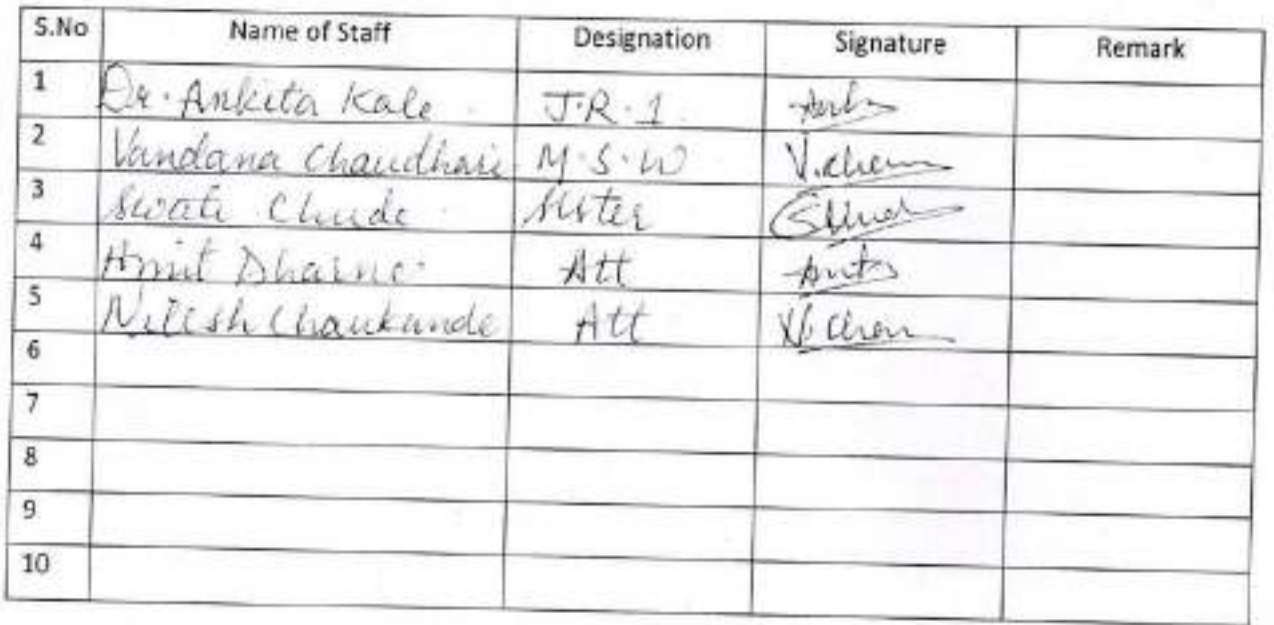 S.No Name of Staff Designation Signature Remark
1 Dr. Ankita Kale J.R.1
2 Vandana Chaudhari M.S.W V.
3 Swati Chude Sister
4 Amit Att
5 Nilesh Chaukunde Att N.
6
7
8
9
10